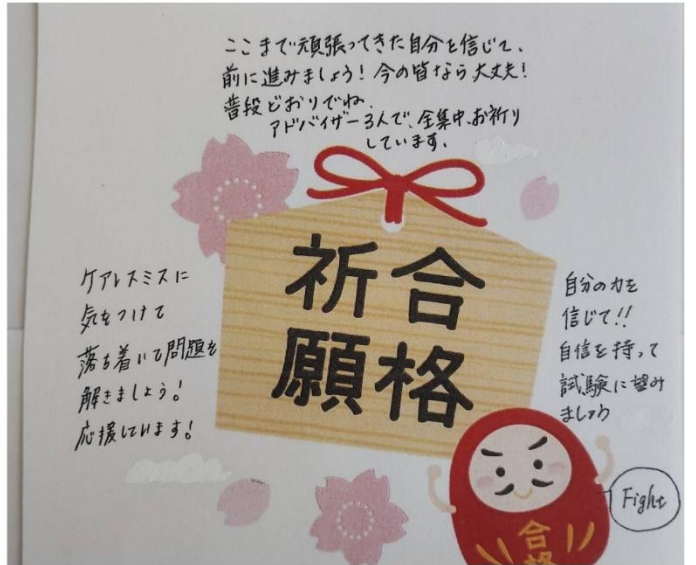 ここまで頑張ってきた自分を信じて、
前に進みましょう！今の皆なら大丈夫！
普段どおりでね、
アドバイザー3人で、全集中お祈り
しています。
合格
祈願
ケアレスミスに
気をつけて
落ち着いて問題を
解きましょう！
応援しています！
自分の力を
信じて！！
自信を持って
試験に望み
ましょう
Fight
合格